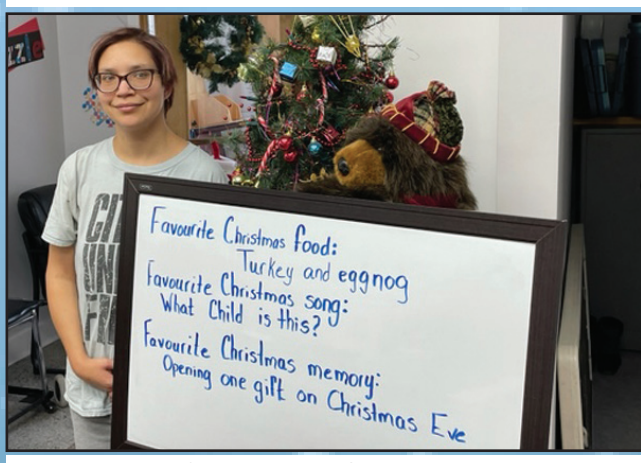 Favourite Christmas food:
Turkey and eggnog
Favourite Christmas song:
What Child is this?
Favourite Christmas memory:
Opening one gift on Christmas Eve